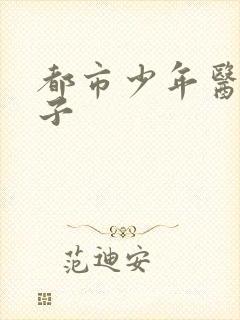 都市少年醫
子
范迪安